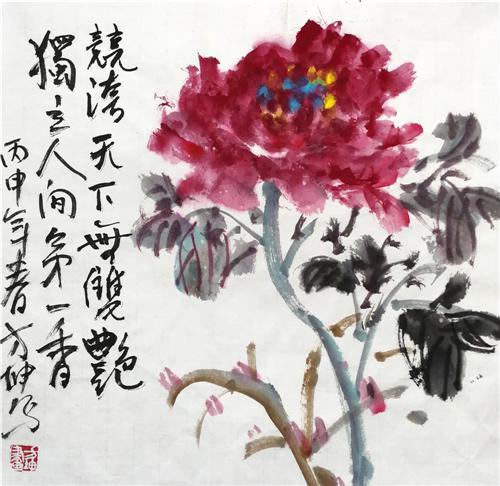 競誇天下無雙艷
獨立人间第一香
丙申年春方坤写